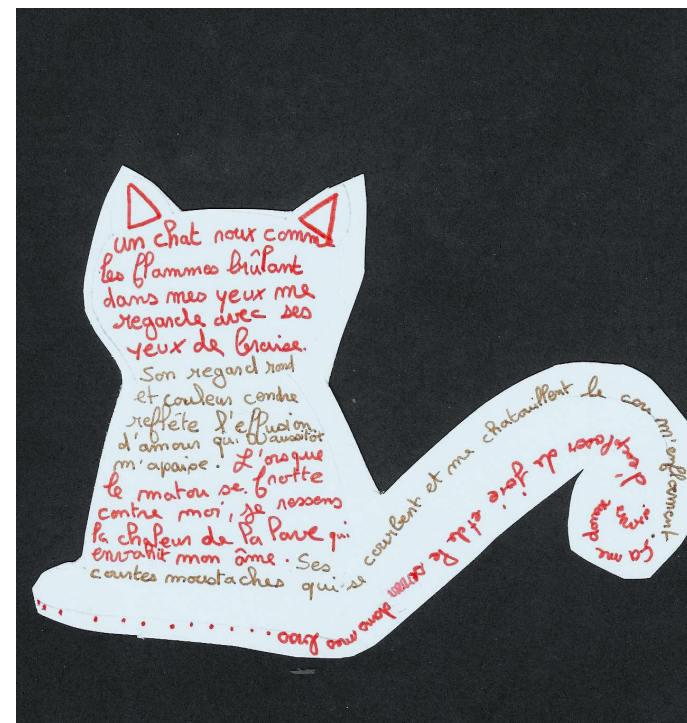 un chat roux comme
les flammes brûlant
dans mes yeux me
regarde avec ses
yeux de braise.
Son regard rond
et couleur cendre
reflète l'effusion
d'amour qui aussitôt
m'apaise. L'orsque
le matou se frotte
contre moi, je ressens
la chaleur de la lave qui
envahit mon âme. Ses
courtes moustaches qui se courbent et me chatouillent le cou m'enflamment.
ça me donne envie d'exploser de joie et de le serrer dans mes bras